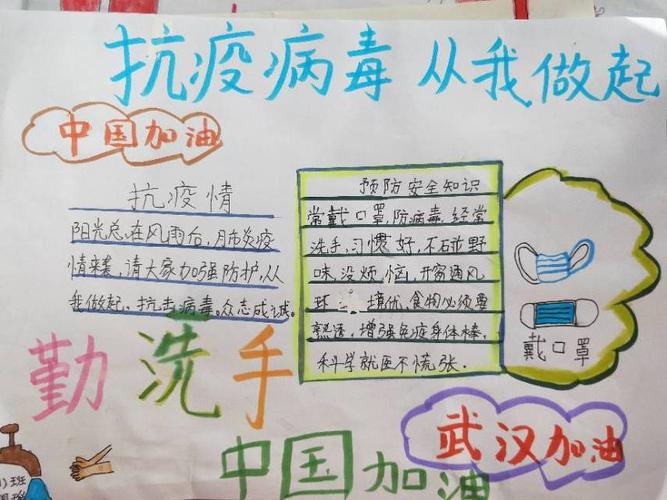 抗疫病毒 从我做起
中国加油
抗疫情
阳光总在风雨后,肺炎疫
情来袭,请大家加强防护,从
我做起,抗击病毒。众志成诚。
预防安全知识
常戴口罩,防病毒,经常
洗手,习惯好,不碰野
味没烦恼,开窗通风
环 境优,食物必须要
熟透,增强免疫身体棒,
科学就医不慌张.
戴口罩
勤洗手
武汉加油
中国加油
班